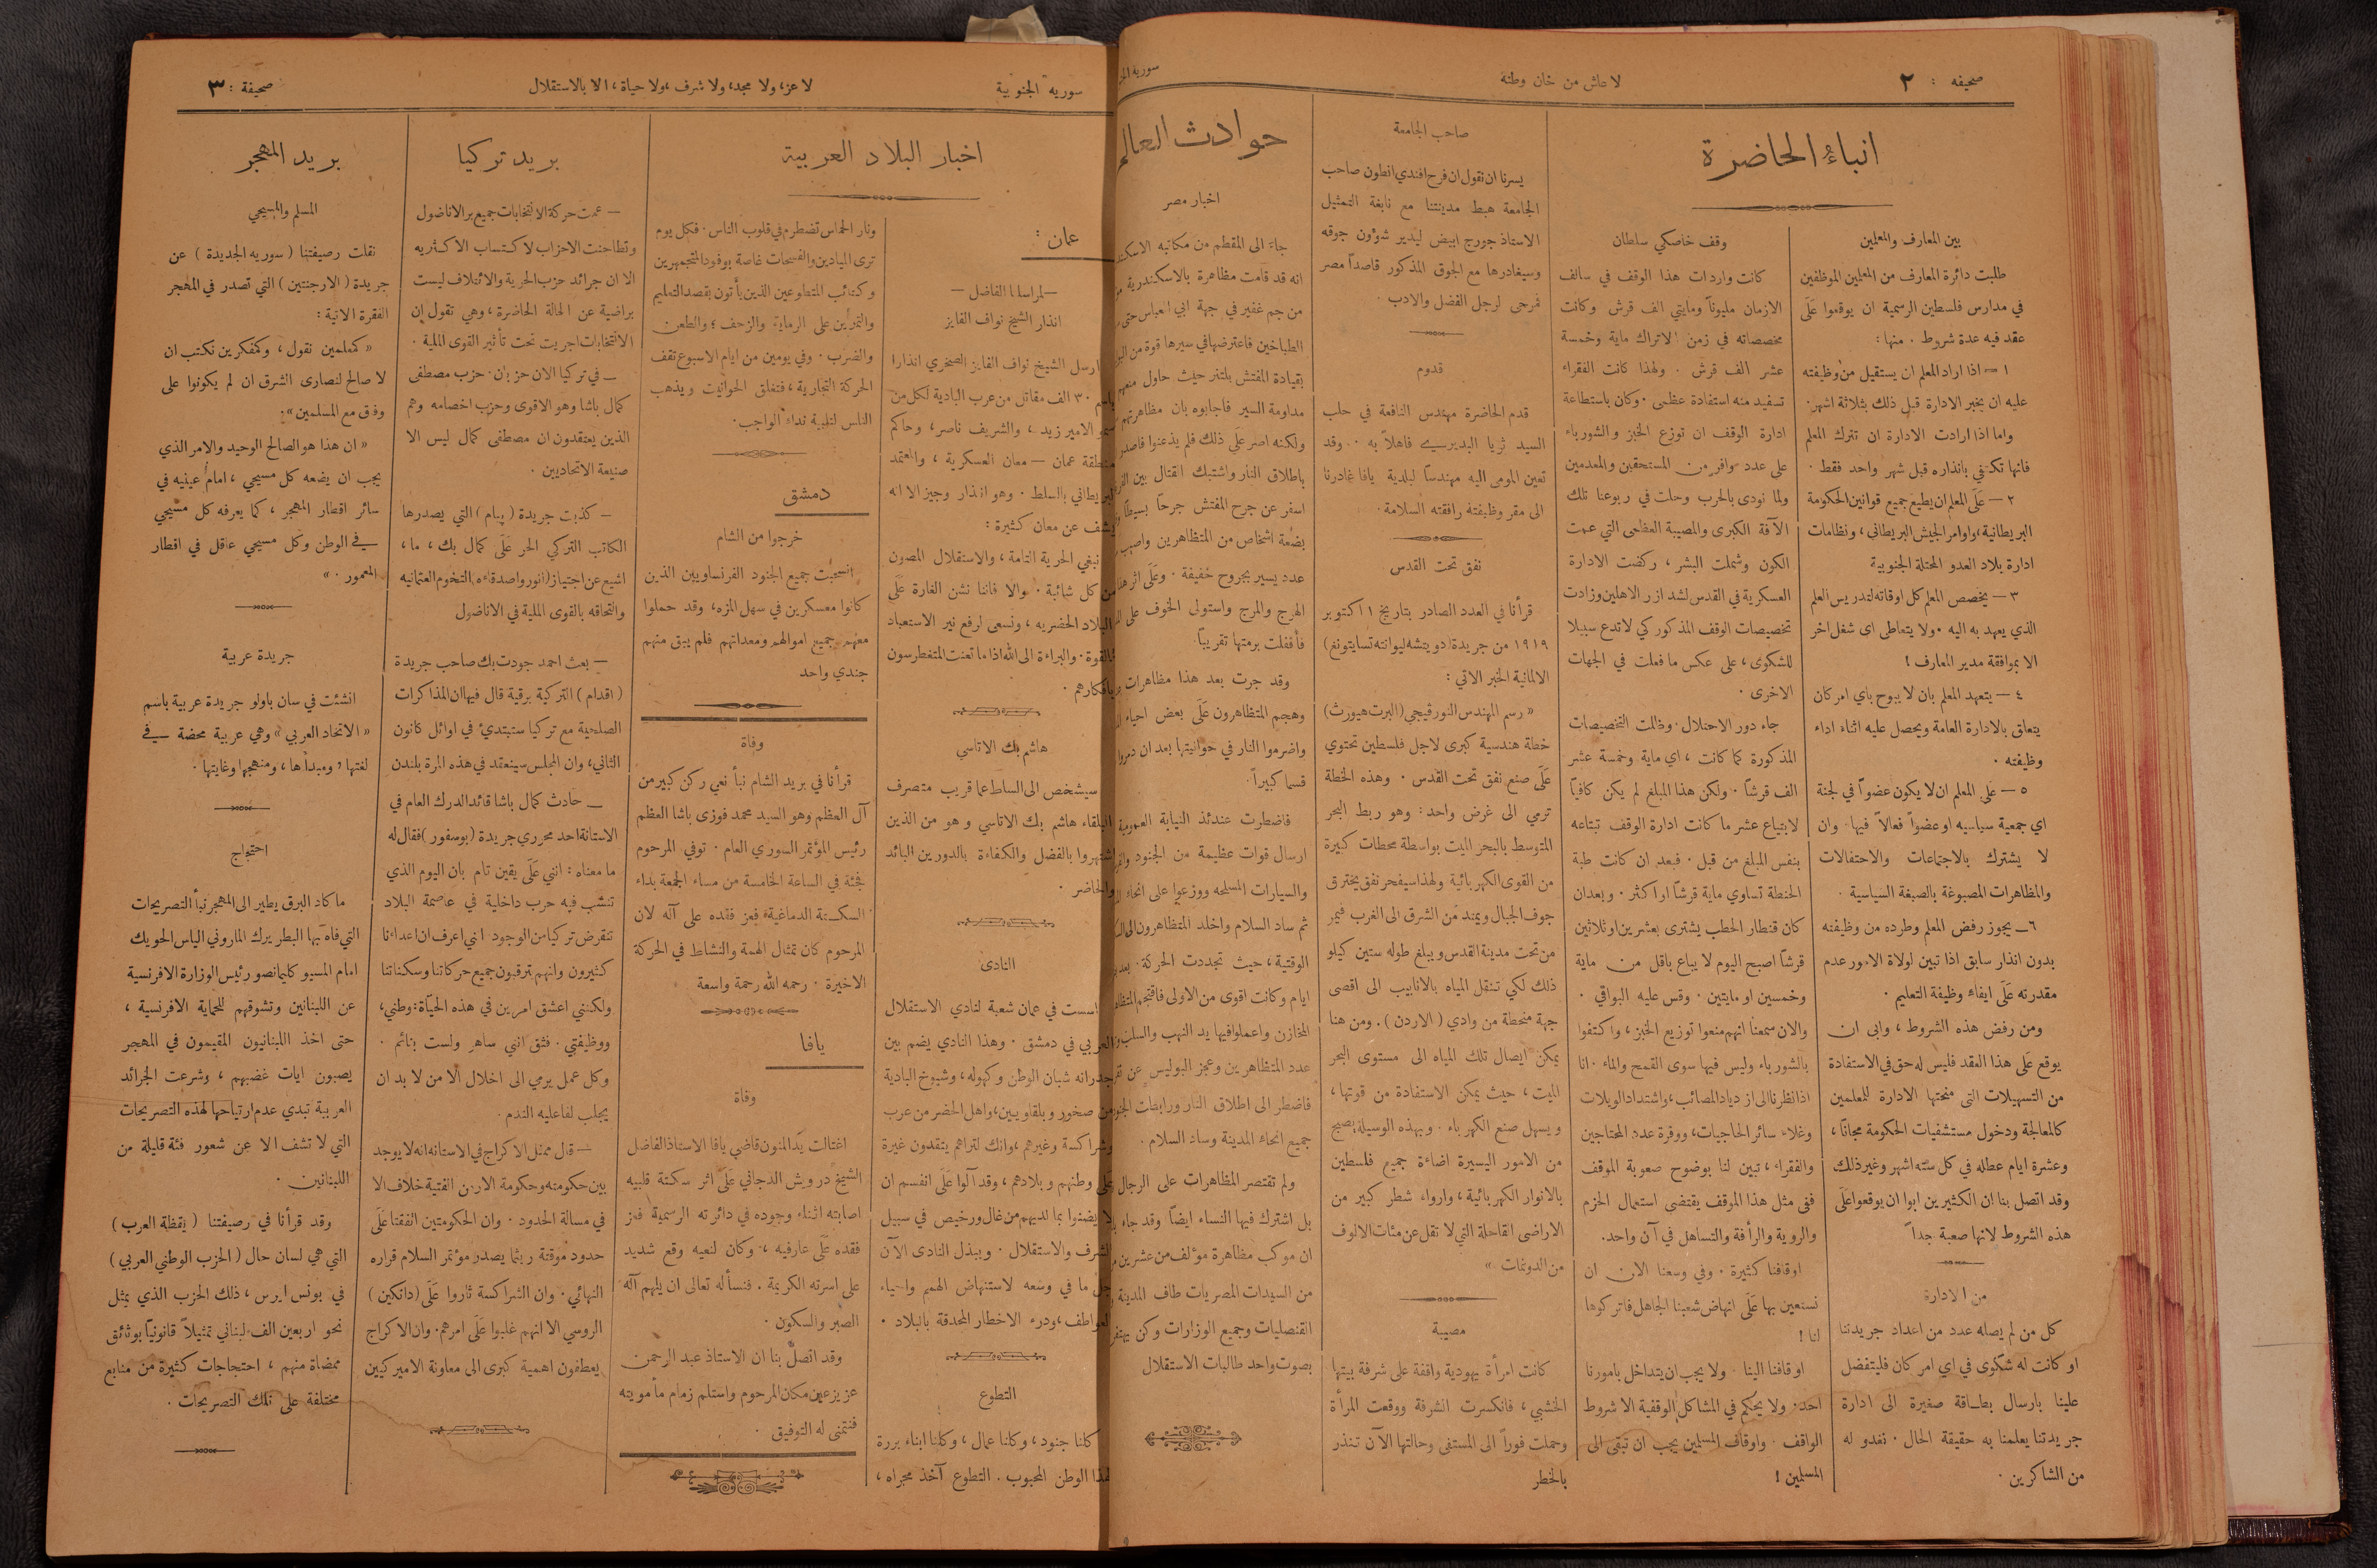 صحيفه : ٢
لا عاش من خان وطنه
سورية
انباء الحاضرة
بين المعارف والمعلمين
طلبت دائرة المعارف من المعلمين الموظفين
في مدارس فلسطين الرسمية ان يوقعوا عَلَى
عقد فيه عدة شروط . منها :
١ — اذا اراد المعلم ان يستقيل من وظيفته
عليه ان يخبر الادارة قبل ذلك بثلاثة اشهر .
واما اذا ارادت الادارة ان تترك المعلم
فانها تكتفي بانذاره قبل شهر واحد فقط .
٢ — عَلَى المعلم ان يطيع جميع قوانين الحكومة
البريطانية ، واوامر الجيش البريطاني ، ونظامات
ادارة بلاد العدو المحتلة الجنوبية
٣ — يخصص المعلم كل اوقاته لتدريس العلم
الذي يعهد به اليه . ولا يتعاطى اى شغل اخر
الا بموافقة مدير المعارف !
٤ — يتعهد المعلم بان لا يبوح باي امر كان
يتعلق بالادارة العامة ويحصل عليه اثناء اداء
وظيفته .
٥ — على المعلم ان لا يكون عضواً في لجنة
اي جمعية سياسيه او عضواً فعالاً فيها . وان
لا يشترك بالاجتماعات والاحتفالات
والمظاهرات المصبوغة بالصبغة السياسية .
٦ — يجوز رفض المعلم وطرده من وظيفته
بدون انذار سابق اذا تبين لولاة الامور عدم
مقدرته عَلَى ايفاء وظيفة التعليم .
ومن رفض هذه الشروط ، وابى ان
يوقع عَلَى هذا العقد فليس له حق في الاستفادة
من التسهيلات التى منحتها الادارة للمعلمين
كالمعالجة ودخول مستشفيات الحكومة مجاناً ،
وعشرة ايام عطله في كل ستة اشهر وغير ذلك
وقد اتصل بنا ان الكثيرين ابوا ان يوقعوا عَلَى
هذه الشروط لانها صعبة جداً
من الادارة
كل من لم يصله عدد من اعداد جريدتنا
او كانت له شكوى في اي امر كان فليتفضل
علينا بارسال بطاقة صغيرة الى ادارة
جريدتنا يعلمنا به حقيقة الحال . نغدو له
من الشاكرين .
وقف خاصكي سلطان
كانت واردات هذا الوقف في سالف
الازمان مليوناً ومايتي الف قرش وكانت
مخصصاته في زمن الاتراك ماية وخمسة
عشر الف قرش . ولهذا كانت الفقراء
تستفيد منه استفادة عظمى . وكان باستطاعة
ادارة الوقف ان توزع الخبز والشورباء
على عدد وافر من المستحقين والمعدمين
ولما نودى بالحرب وحلت في ربوعنا تلك
الآفة الكبرى والمصيبة العظمى التي عمت
الكون وشملت البشر ، ركضت الادارة
العسكرية في القدس لشد ازر الاهلين وزادت
تخصيصات الوقف المذكور كي لا تدع سبيلا
للشكوى ، على عكس ما فعلت في الجهات
الاخرى .
جاء دور الاحتلال . وظلت التخصيصات
المذكورة كما كانت ، اي ماية وخمسة عشر
الف قرشاً . ولكن هذا المبلغ لم يكن كافياً
لابتياع عشر ما كانت ادارة الوقف تبتاعه
بنفس المبلغ من قبل . فبعد ان كانت طبة
الحنطة تساوي ماية قرشاً او اكثر . وبعد ان
كان قنطار الحطب يشترى بعشرين او ثلاثين
قرشاً اصبح اليوم لا يباع باقل من ماية
وخمسين او مايتين . وقس عليه البواقي .
والان سمعنا انهم منعوا توزيع الخبز ، واكتفوا
بالشورباء وليس فيها سوى القمح والماء . انا
اذا نظرنا الى ازدياد المصائب ، واشتداد الويلات
وغلاء سائر الحاجيات ، ووفرة عدد المحتاجين
والفقراء ، تبين لنا بوضوح صعوبة الموقف
ففى مثل هذا الموقف يقتضى استعمال الحزم
والروية والرأفة والتساهل في آن واحد .
اوقافنا كثيرة . وفي وسعنا الان ان
نستعين بها عَلَى انهاض شعبنا الجاهل فاتركوها
لنا !
اوقافنا الينا . ولا يجب ان يتداخل بامورنا
احد . ولا يحكم في المشاكل الوقفية الا شروط
الواقف . واوقاف المسلمين يجب ان تبقى الى
المسلمين !
صاحب الجامعة
يسرنا ان نقول ان فرح افندي انطون صاحب
الجامعة هبط مدينتنا مع نابغة التمثيل
الاستاذ جورج ابيض ليدير شؤون جوقه
وسيغادرها مع الجوق المذكور قاصداً مصر
فمرحى لرجل الفضل والادب .
قدوم
قدم الحاضرة مهندس النافعة في حلب
السيد ثريا البديري فاهلاً به . . وقد
تعين المومى اليه مهندساً لبلدية يافا غادرنا
الى مقر وظيفته رافقته السلامة .
نفق تحت القدس
قرأنا في العدد الصادر بتاريخ ١ اكتوبر
١٩١٩ من جريدة ( دويتشه ليوانته تسايتونغ )
الالمانية الخبر الاتي :
« رسم المهندس النورفيجي ( البرت هيورث )
خطة هندسية كبرى لاجل فلسطين تحتوي
عَلَى صنع نفق تحت القدس . وهذه الخطة
ترمي الى غرض واحد : وهو ربط البحر
المتوسط بالبحر الميت بواسطة محطات كبيرة
من القوى الكهربائية ولهذا سيفحر نفق يخترق
جوف الجبال ويمتد من الشرق الى الغرب فيمر
من تحت مدينة القدس ويبلغ طوله ستين كيلو
ذلك لكي تنقل المياه بالانابيب الى اقصى
جهة منحطة من وادي ( الاردن ) . ومن هنا
يمكن ايصال تلك المياه الى مستوى البحر
الميت ، حيث يمكن الاستفادة من قوتها ،
ويسهل صنع الكهرباء . وبهذه الوسيلة يصبح
من الامور اليسيرة اضاءة جميع فلسطين
بالانوار الكهربائية ، وارواء شطر كبير من
الاراضى القاحلة التي لا تقل عن مئات الالوف
من الدونمات »
مصيبة
كانت امرأة يهودية واقفة على شرفة بيتها
الخشبي ، فانكسرت الشرفة ووقعت المرأة
وحملت فوراً الى المستفى وحالتها الآن تنذر
بالخطر
حوادث العالم
اخبار مصر
جاء الى المقطم من مكاتبه
انه قد قامت مظاهرة بالاسكندرية
من جم غفير في جهة ابي العباس حتى
الطباخين فاعترضها في سيرها قوة من
بقيادة المفتش بلتنر حيث حاول منعهم
مداومة السير فاجابوه بان مظاهرتهم
ولكنه اصر عَلَى ذلك فلم يذعنوا
باطلاق النار واشتبك القتال بين
اسفر عن جرح المفتش جرحاً بسيطاً
بضعة اشخاص من المتظاهرين واصيب
عدد يسير بجروح خفيفة . وعَلَى اثر
الهرج والمرج واستولى الخوف على
فأقفلت برمتها تقريباً .
وقد جرت بعد هذا مظاهرات
وهجم المتظاهرون عَلَى بعض احياء
واضرموا النار في حوانيتها بعد ان دمروا
قسما كبيراً .
فاضطرت عندئذ النيابة العمومية
ارسال قوات عظيمة من الجنود
والسيارات المسلحه ووزعوا على انحاء
ثم ساد السلام واخلد المتظاهرون الى
الوقتية ، حيث تجددت الحركة بعد
ايام وكانت اقوى من الاولى فاقتحم
المخازن واعملوا فيها يد النهب والسلب
عدد المتظاهرين وعجز البوليس عن
فاضطر الى اطلاق النار ورابطت
جميع انحاء المدينة وساد السلام .
ولم تقتصر المظاهرات على الرجال
بل اشترك فيها النساء ايضاً وقد جاء
ان موكب مظاهرة مؤلف من عشرين
من السيدات المصريات طاف المدينة
القنصليات وجميع الوزارات وكن
بصوت واحد طالبات الاستقلال
سورية الجنوبية
لا عز ، ولا مجد ، ولا شرف ، ولا حياة ، الا بالاستقلال
صحيفة : ٣
اخبار البلاد العربية
عمان :
— لمراسلنا الفاضل —
انذار الشيخ نواف الفايز
ارسل الشيخ نواف الفايز الصخري انذارا
باسم ٣٠ الف مقاتل من عرب البادية لكل من
سمو الامير زيد ، والشريف ناصر ، وحاكم
منطقة عمان — معان العسكرية ، والمعتمد
البريطاني بالسلط . وهو انذار وجيز الا انه
يشف عن معان كثيرة :
نبغي الحرية التامة ، والاستقلال المصون
من كل شائبة . والا فاننا نشن الغارة عَلَى
البلاد الحضريه ، ونسعى لرفع نير الاستعباد
بالقوة . والبراءة الى الله اذا ما تعنت المتغطرسون
بافكارهم .
هاشم بك الاتاسي
سيشخص الى السلط عما قريب متصرف
البلقاء هاشم بك الاتاسي وهو من الذين
اشتهروا بالفضل والكفاءة بالدورين البائد
والحاضر .
النادى
اسست في عمان شعبة لنادي الاستقلال
العربي في دمشق . وهذا النادي يضم بين
جدرانه شبان الوطن وكهوله ، وشيوخ البادية
من صخور وبلقاويين ، واهل الحضر من عرب
وشراكسة وغيرهم ، وانك لتراهم يتقدون غيرة
عَلَى وطنهم وبلادهم ، وقد آلوا عَلَى انفسم ان
لا يضنوا بما لديهم من غال ورخيص في سبيل
الشرف والاستقلال . ويبذل النادى الآن
جل ما في وسعه لاستنهاض الهمم واحياء
العواطف ، ودرء الاخطار المحدقة بالبلاد .
التطوع
كلنا جنود ، وكلنا عمال ، وكلنا ابناء بررة
لهذا الوطن المحبوب . التطوع آخذ مجراه ،
ونار الحماس تضطرم في قلوب الناس . فكل يوم
ترى الميادين والفسحات غاصة بوفود المتجمهرين
وكتائب المتطوعين الذين يأتون بقصد التعليم
والتمرين على الرماية والزحف ، والطعن
والضرب . وفي يومين من ايام الاسبوع تقف
الحركة التجارية ، فتغلق الحوانيت ويذهب
الناس لتلبية نداء الواجب .
دمشق
خرجوا من الشام
انسحبت جميع الجنود الفرنساويين الذين
كانوا معسكرين في سهل المزه ، وقد حملوا
معهم جميع اموالهم ومعداتهم فلم يبق منهم
جندي واحد
وفاة
قرأنا في بريد الشام نبأ نعي ركن كبير من
آل العظم وهو السيد محمد فوزى باشا العظم
رئيس المؤتمر السوري العام . توفي المرحوم
فجئة في الساعة الخامسة من مساء الجمعة بداء
السكتة الدماغية فعز فقده على آله لان
المرحوم كان تمثال الهمة والنشاط في الحركة
الاخيرة . رحمه الله رحمة واسعة
يافا
وفاة
اغتالت يد المنون قاضي يافا الاستاذ الفاضل
الشيخ درويش الدجاني عَلَى اثر سكتة قلبيه
اصابته اثناء وجوده في دائرته الرسمية فعز
فقده عَلَى عارفيه ، وكان لنعيه وقع شديد
على اسرته الكريمة . فنسأله تعالى ان يلهم آله
الصبر والسكون .
وقد اتصل بنا ان الاستاذ عبد الرحمن
عزيز عين مكان المرحوم واستلم زمام مأموريته
فنتمنى له التوفيق .
بريد تركيا
— عمت حركة الانتخابات جميع بر الاناضول
وتطاحنت الاحزاب لاكتساب الاكثريه
الا ان جرائد حزب الحرية والائتلاف ليست
براضية عن الحالة الحاضرة ، وهي تقول ان
الانتخابات اجريت تحت تأثير القوى الملية .
— في تركيا الان حزبان . حزب مصطفى
كمال باشا وهو الاقوى وحزب اخصامه وهم
الذين يعتقدون ان مصطفى كمال ليس الا
صنيعة الاتحاديين .
— كذبت جريدة ( پيام ) التي يصدرها
الكاتب التركي الحر عَلَى كمال بك ، ما ،
اشيع عن اجتياز ( انور واصدقاءه ) التخوم العثمانيه
والتحاقه بالقوى الملية في الاناضول
— بعث احمد جودت بك صاحب جريدة
( اقدام ) التركية برقية قال فيها ان المذاكرات
الصلحية مع تركيا ستبتدئ في اوائل كانون
الثاني ، وان المجلس سينعقد في هذه المرة بلندن
— حادث كمال باشا قائد الدرك العام في
الاستانة احد محرري جريدة ( بوسفور ) فقال له
ما معناه : انني عَلَى يقين تام بان اليوم الذي
تنشب فيه حرب داخلية في عاصمة البلاد
تنقرض تركيا من الوجود . انني اعرف ان اعداءنا
كثيرون وانهم يترقبون جميع حركاتنا وسكناتنا
ولكنني اعشق امرين في هذه الحياة : وطني ،
ووظيفتي . فثق انني ساهر ولست بنائم .
وكل عمل يرمي الى اخلال الامن لا بد ان
يجلب لفاعليه الندم .
— قال ممثل الاكراج في الاستانه انه لا يوجد
بين حكومته وحكومة الارمن الفتية خلاف الا
في مسالة الحدود . وان الحكومتين اتفقتا عَلَى
حدود موقتة ريثما يصدر مؤتمر السلام قراره
النهائي . وان الشراكسة ثاروا عَلَى ( دانكين )
الروسي الا انهم غلبوا عَلَى امرهم . وان الاكراج
يعطفون اهمية كبرى الى معاونة الاميركيين
بريد المهجر
المسلم والمسيحي
نقلت رصيفتنا ( سوريه الجديدة ) عن
جريدة ( الارجنتين ) التي تصدر في المهجر
الفقرة الاتية :
« كمعلمين نقول ، وكمفكرين نكتب ان
لا صالح لنصارى الشرق ان لم يكونوا على
وفاق مع المسلمين » .
« ان هذا هو الصالح الوحيد والامر الذي
يجب ان يضعه كل مسيحي ، امام عينيه في
سائر اقطار المهجر ، كما يعرفه كل مسيحي
في الوطن وكل مسيحي عاقل في اقطار
المعمور . »
جريدة عربية
انشئت في سان باولو جريدة عربية باسم
« الاتحاد العربي » وهي عربية محضة في
لغتها ، ومبدأها ، ومنهجها وغايتها .
احتجاج
ما كاد البرق يطير الى المهجر نبأ التصريحات
التي فاه بها البطريرك الماروني الياس الحويك
امام المسيو كليمانصو رئيس الوزارة الافرنسية
عن اللبنانين وتشوقهم للحماية الافرنسية ،
حتى اخذ اللبنانيون المقيمون في المهجر
يصبون ايات غضبهم ، وشرعت الجرائد
العربية تبدي عدم ارتياحها لهذه التصريحات
التي لا تشف الا عن شعور فئة قليلة من
اللبنانين .
وقد قرأنا في رصيفتنا ( يقظة العرب )
التي هي لسان حال ( الحزب الوطني العربي )
في بونس ايرس ، ذلك الحزب الذي يمثل
نحو اربعين الف لبناني تمثيلاً قانونياً بوثائق
ممضاة منهم ، احتجاجات كثيرة من منابع
مختلفة على تلك التصريحات .